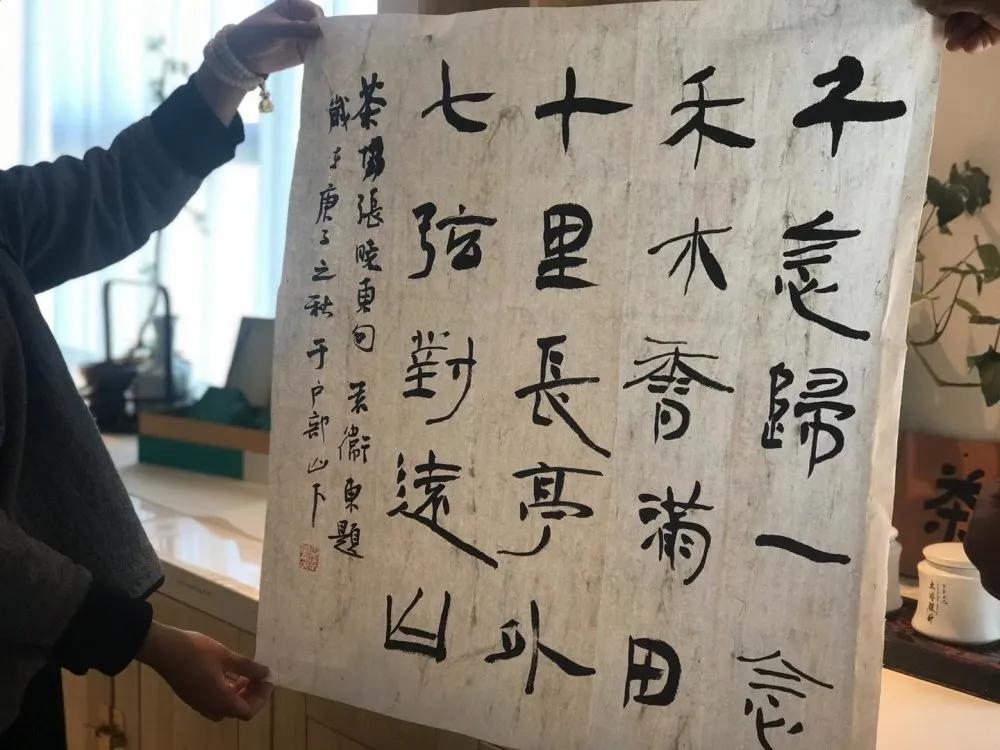 千念歸一念
禾木香滿田
十里長亭外
七弦對遠山
茶張曉東句 衞東題
歲在庚子之秋 于户部山下
茶